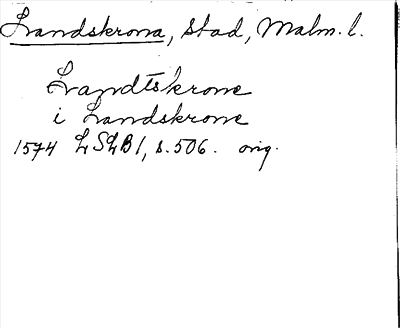 Landskrona, stad, Malm. l.
Landtskrone
i Landskrone
1574 LSLB 1, s. 506. orig.